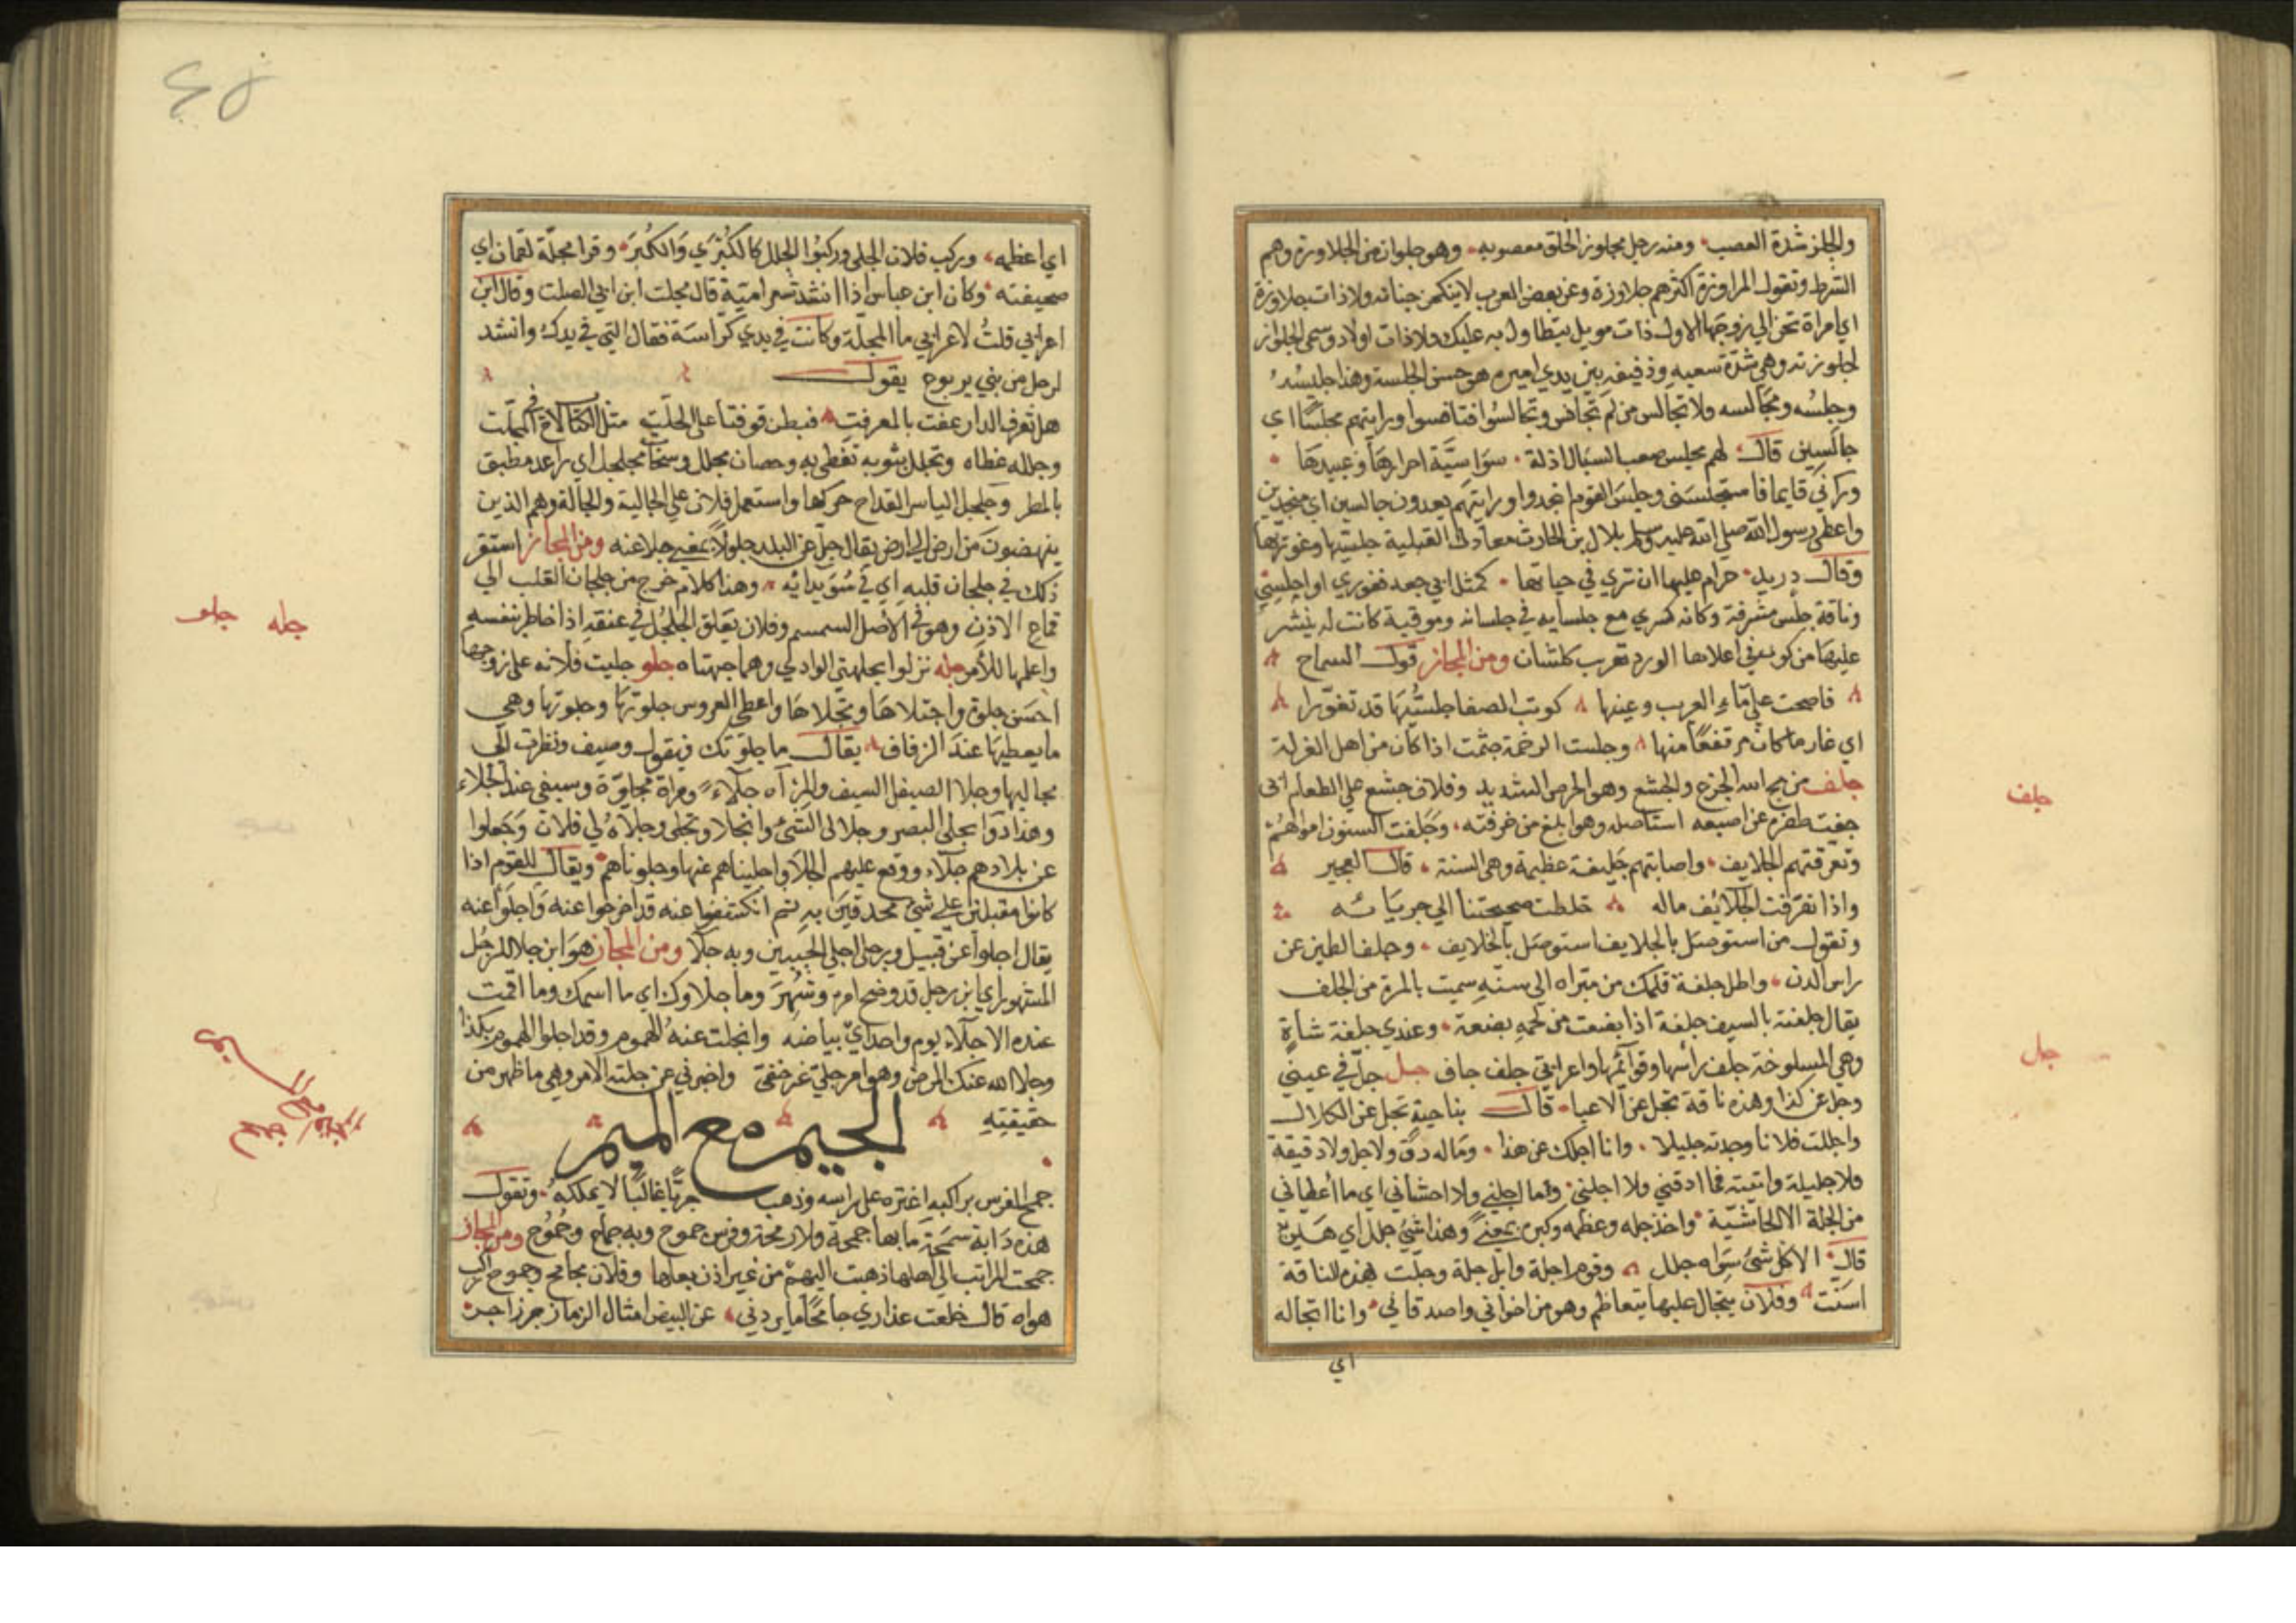 والجلز شدة العصب ومنه رجل مجلوز الخلق معصوبه وهو جلواز من الجلاوزة وهم
الشرط وتقول المراوزة اكثرهم جلاوزة وعن بعض العرب لاينكحن حنانه ولاذات جلاوزة
اي امراة تحن الي زوجها الاول ذات مويل يتطاول به عليك ولاذات اولاد وسمي الجلواز
لجلوزته وهي شدة سعيه وذفيفه بين يدي اميره هو حسن الجلسة وهذا جليسه
وجلسه ومجالسه ولا تجالس من لم تجانس وتجالسوا فتانسوا ورايتهم مجلسا اي
جالسين قال لهم مجلس صهب السبال اذلة سواسية احرارها وعبيدها
وراني قايما فاستجلسني وجلس القوم انجدوا ورايتهم يعدون جالسين اي منجدين
واعطي رسول الله صلي الله عليه وسلم بلال بن الحارث معادن القبلية جلسيها وغوريها
وقال دريد حرام عليها ان تري في حياتها كمثل ابي جعد فغوري او اجلسي
وناقة جلس مشرفة وكانه كسري مع جلسايه في جلسانه وهو قبة كانت له ينثر
عليها من كوة في اعلاها الورد تعرب كلشان ومن المجاز قول الشماخ
فاضحت علي ماء العذيب وعينها كوقب الصفا جلسيها قد تغورا
اي غار ماكان مرتفعا منها وجلست الرخمة جثمت اذا كان من اهل الغزلة
جلف من جلف الجزع والجشع وهو الحرص الشديد وفلان جشع علي الطعام اتي
جلفت ظفره عن اصبعه استاصله وهو ابلغ من خرفته وجلفت السنون اموالهم
وتعرقتهم الجلايف واصابتهم جليفة عظيمة وهي السنة قال العجير
واذا تعرقت الجلائف ماله خلطت صحيحتنا الي جربائه
وتقول من استوصل بالجلايف استوصل بالخلايف وجلف الطين عن
راس الدن واطل جلفة قلمك من مبراه الي سنه سميت بالمرة من الجلف
يقال جلفته بالسيف جلفة اذا بضعت من لحمه بضعة وعندي جلفة شاة
وهي المسلوخة جلف راسها وقوائمها واعرابي جلف جاف جل جل في عيني
وجل عن كذا وهذه ناقة تجل عن الاعيا قال بناجية تجل عن الكلال
واجللت فلانا وجدته جليلا وانا اجلك عن هذا وماله دق ولا جل ولا دقيقة
ولا جليلة واتيته فما ادقني ولا اجلني وما اجلني ولا احشاني اي ما اعطاني
من الجلة الا الحاشية واخذ جله وعظمه وكبره بمعني وهذا شي جلل اي هين
قال الا كل شي سواه جلل وقوم اجلة وابل جلة وجلت هذه الناقة
اسنت وفلان يتجال عليها يتعاظم وهو من اخواني واصدقاني وانا اتجاله
اي
جلف
جل
اي اعظمه وركب فلان الجلي وركبوا الجلل كالكبري والكبر وقرا مجلة لقمان اي
صحيفته وكان ابن عباس اذا انشد شعر امية قال مجلت ابن ابي الصلت وقال ابن
اعرابي قلت لاعرابي ما المجلة وكانت في يدي كراسة فقال التي في يدك وانشد
لرجل من بني يربوع يقول
هل تعرف الدار عفت بالمعرفت فبطن قو فتاعلي الحلت مثل الكتاب لاح
وجلله غطاه وتجلل بثوبه تغطي به وحصان مجلل وسحاب مجلجل اي راعد مطبق
بالمطر وجلجل الياسر القداح حركها واستعمل فلان علي الجالية والجالة وهم الذين
ينهضون من ارض الي ارض يقال جل عن البلد جلولا بمعني جلا عنه ومن المجاز استقر
ذلك في جلجلان قلبه اي في سويدائه وهذا كلام خرج من جلجلان القلب الي
قماع الاذن وهو في الاصل السمسم وفلان يعلق الجلجل في عنقه اذا خاطر بنفسه
واعلمها للامر جله نزلوا بجلهتي الوادي وهما جهتاه جلو جليت فلانه علي زوجها
احسن جلوة واجتلاها وتجلاها واعطي العروس جلوتها وجلوتها وهي
ما يعطيها عند الزفاف يقال ما جلوتك فيقول وصيف ونظرت الي
مجاليها وجلا الصيقل السيف والمراه جلاء ومراة مجلوة وسيفي عند الجلاء
وهذا دوا يجلي البصر وجلا لي الشي وانجلا وتجلي وجلاه لي فلان وجلوا
عن بلادهم جلاء ووقع عليهم الجلا واجليناهم عنها وجلوناهم ويقال للقوم اذا
كانوا مقبلين علي شي محدقين به ثم انكشفوا عنه قد افرجوا عنه واجلوا عنه
يقال اجلوا عن قتيل ورجل اجلي الجبين وبه جلا ومن المجاز هو ابن جلا للرجل
المشهور اي ابن رجل قد وضح امره وشهر وما جلاوك اي ما اسمك وما اقمت
عنده الا جلاء يوم واحد اي بياضه وانجلت عنه الهموم وقد اجلوا الهموم بكذا
وجلا الله عنك المرض وهو امر جلي غير خفي واخبرني عن جلية الامر وهي ما ظهر من
حقيقته الجيم مع الميم
جمح الفرس براكبه اعتزه علي راسه وذهب جريا غالبا لا يملكه وتقول
هذه دابة سمحة ما بها جمحة ولا رمحة وفرس جموح وبه جماح وجموح ومن المجاز
جمحت المراة الي اهلها ذهبت اليهم من غير اذن بعلها وفلان جامح وجموح راكب
هواه قال خلعت عذاري جامحا ما يردني عن البيض امثال الدمي زجر زاجر
جله جلو
الجيم مع الميم
جمح